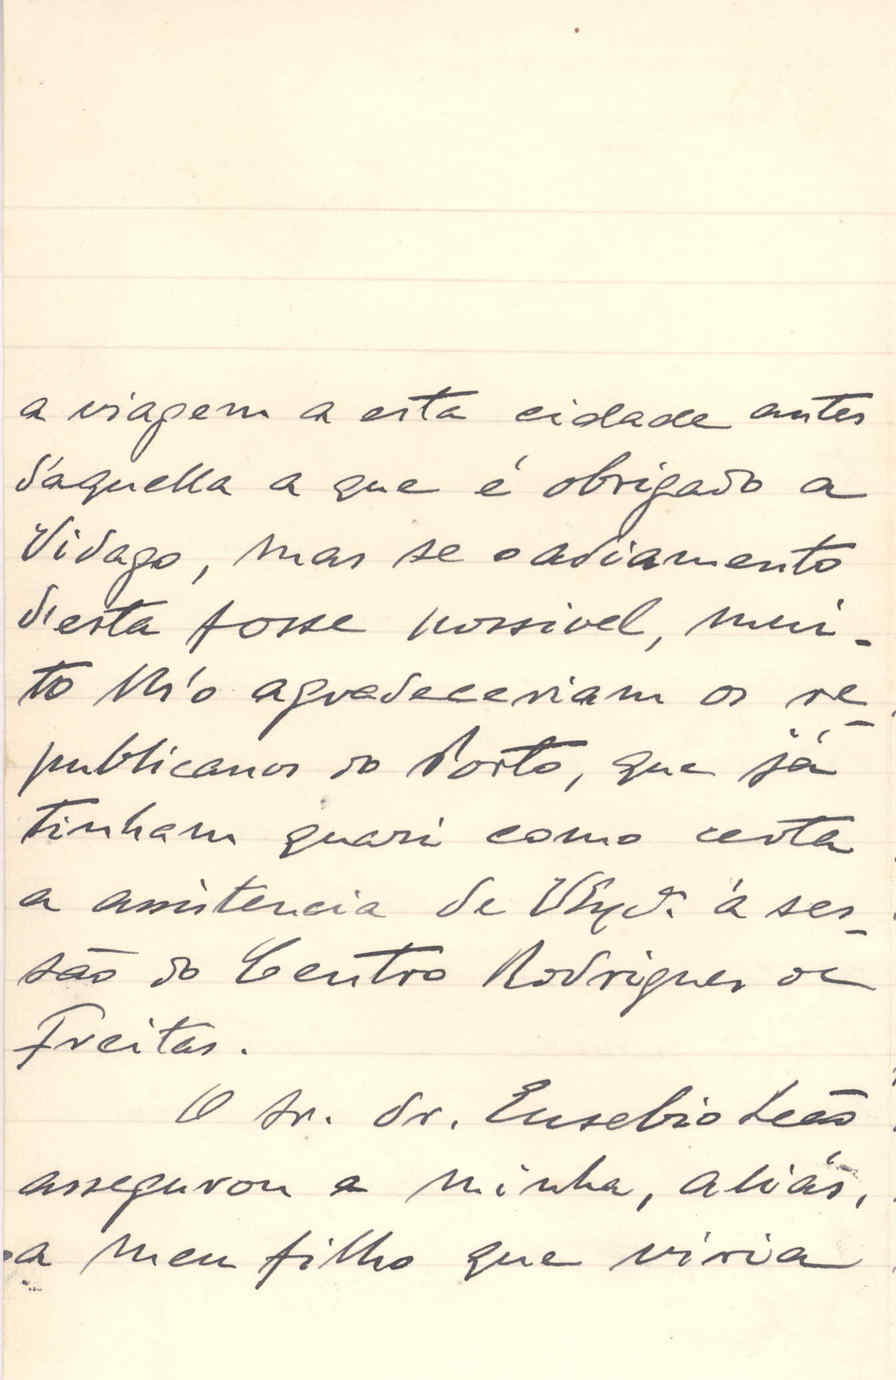 a viagem a esta cidade antes
d'aquella a que é obrigado a
Vidago, mas se o adiamento
d'esta fosse possivel, mui-
to lh'o agradeceriam os re-
publicanos do Porto, que já
tinham quasi como certa
a assistencia de V. Exª. á ses-
são do Centro Rodrigues de
Freitas.
O sr. dr. Eusebio Leão
assegurou a minha, aliás,
a meu filho que viria